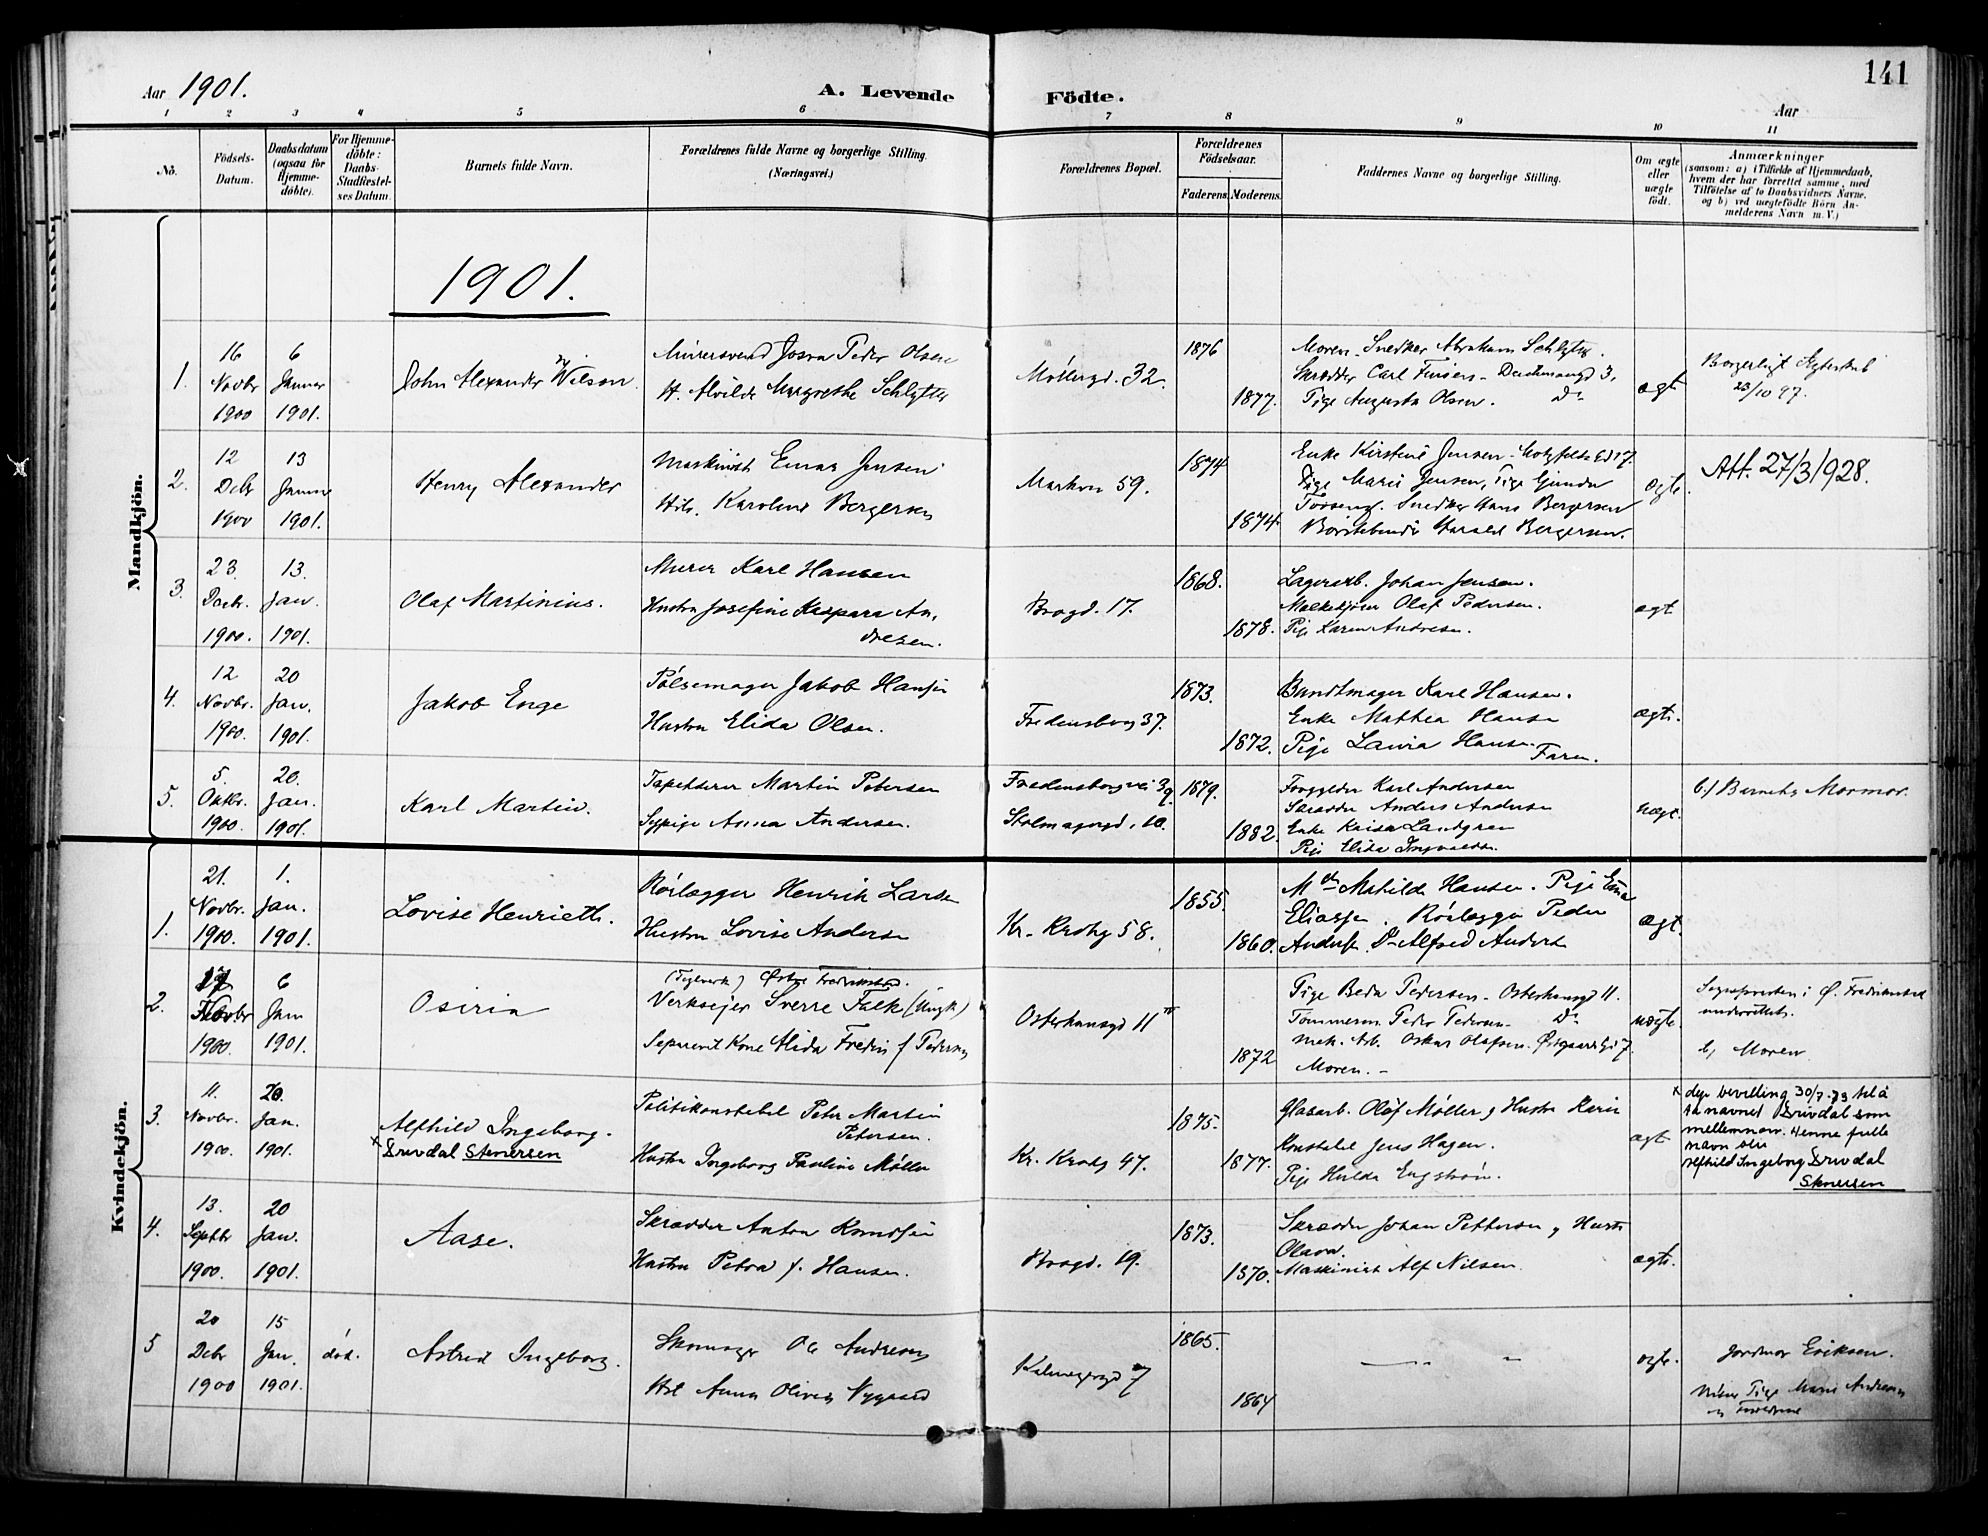 141
Aar 1901. A. Levende Födte. Aar
1 2 3 4 5 6 7 8 9 10 11
No.
Födsels-Datum.
Daabsdatum (ogsaa for Hjemme-döbte).
For Hjemme-döbte: Daabs-Stadfæstel-ses Datum.
Barnets fulde Navn.
Forældrenes fulde Navne og borgerlige Stilling.
(Næringsvei.)
Forældrenes Bopæl.
Forældrenes Födselsaar.
Faderens. Moderens.
Faddernes Navne og borgerlige Stilling.
Om ægte eller uægte født.
Anmærkninger
(saasom: a) i Tilfælde af Hjemmedaab,
hvem der har forrettet samme, med
Tilföielse af to Daabsvidners Navne,
og b) ved uægtefödte Börn An-
melderens Navn m. V.)
Mandkjön.
1901.
1.
16 Novbr 1900
6 Januar 1901.
John Alexander Wilson.
Murersvend Josva Peder Olsen
H. Alvilde Margrethe Schlytter
Møllergd. 32.
1876
1877.
Moren. Snedker Abraham Schlytter.
Skrædder Carl Finsen - 3.
Pige Augusta Olsen. Do
ægt
Borgerligt Ægteskab
23/10 97.
2.
12 Debr 1900
13 Januar 1901.
Henry Alexander
Maskinist Einar Jensen
Hst. Karoline Bergersen
Markvn 59.
1874
1874
Enke Kirstine Jensen - Motzfeldts Gd 17.
Pige Marie Jensen, Pige Gunda
Snedker Hans Bergersen
Børstebinder Harald Bergersen.
ægte.
Att. 27/3/1928.
3.
23. Decbr. 1900.
13. Jan. 1901.
Olaf Martinius.
Murer Karl Hansen
Hustru Josefine Kaspara An-
dresen.
Brogd. 17.
1868.
1878.
Lagerarb. Johan Jensen.
Mælkekjører Olaf Pedersen.
Pige Karen Andresen.
ægt
4.
12 Novbr. 1900.
20 Jan. 1901.
Jakob Enge
Pølsemager Jakob Hansen
Hustru Elida Olsen.
Fredensborg 37.
1873.
1872.
Bundtmager Karl Hansen.
Enke Mathea Hansen
Pige Laura Hansen. Faren.
ægte.
5.
5. Oktbr. 1900.
20. Jan. 1901.
Karl Martin.
Tapetserer Martin Petersen
Sypige Anna Andersen.
Fredensborgvei 39.
Stolmagergd. 10.
1879.
1882.
Forgylder Karl Andersen
Skrædder Anders Andersen
Enke Kaisa Landgren
Pige Elida Ingvaldsen
uægt.
b.) Barnets Mormor.
Kvindekjön.
1.
21. Novbr. 1900.
1. Jan. 1901.
Lovise Henriette.
Rørlægger Henrik Larsen
Hustru Lovise Andersen
Kr. Krohg 58.
1855.
1860.
Mdm Mathilde Hansen. Pige Emma
Eliassen. Rørlægger Peder
Andersen. Do Alfred Andersen
ægt.
2.
17 Novbr 1900.
6 Jan 1901.
Osiria
(Teglverk) Østre Fredrikstad.
Verkseier Sverre Falk (Ungk.)
Separeret Kone Alida Fredin f. Pedersen
Osterhausgd 11 IV
1872
Pige Beda Pedersen - Osterhausgd 11.
Tømmerm. Peder Pedersen - Do
Mek. Arb. Oskar Olafsen. Østgaards Gd 7.
Moren. -
uægte.
Sognepresten i Ø. Fredrikstad
underrettet.
b, Moren
3.
11. Novbr. 1900.
20. Jan. 1901.
Alfhild Ingeborg.
x Drivdal Stenersen
Politikonstabel Peter Martin
Petersen.
Hustru Ingeborg Pauline Møller
Kr. Krohg 47.
1875.
1877.
Glasarb. Olaf Møller og Hustru Karin
Konstabel Jens Hagen.
Pige Hulda Engstrøm.
ægt
x dep bevilling 30/7-73 til å
ta navnet Drivdal som
mellemnavn. Hennes fulle
navn blir
Alfhild Ingeborg Drivdal
Stenersen
4.
13. Septbr 1900.
20 Jan. 1901.
Aase.
Skrædder Anton Knudsen
Hustru Petra f. Hansen.
Brogd. 19.
1873.
1870.
Skrædder Johan Pettersen og Hustru
Olava.
Maskinist Alf Nilsen.
ægte.
5
20 Debr 1900
15 Jan. 1901.
død.
Astrid Ingeborg.
Skomager Ole Andresen
Hst Anna Olivia Nygaard
7
1865.
1864
ægte.
Jordmor Eriksen.
Vidner Pige Marie Andresen
og Forældrene